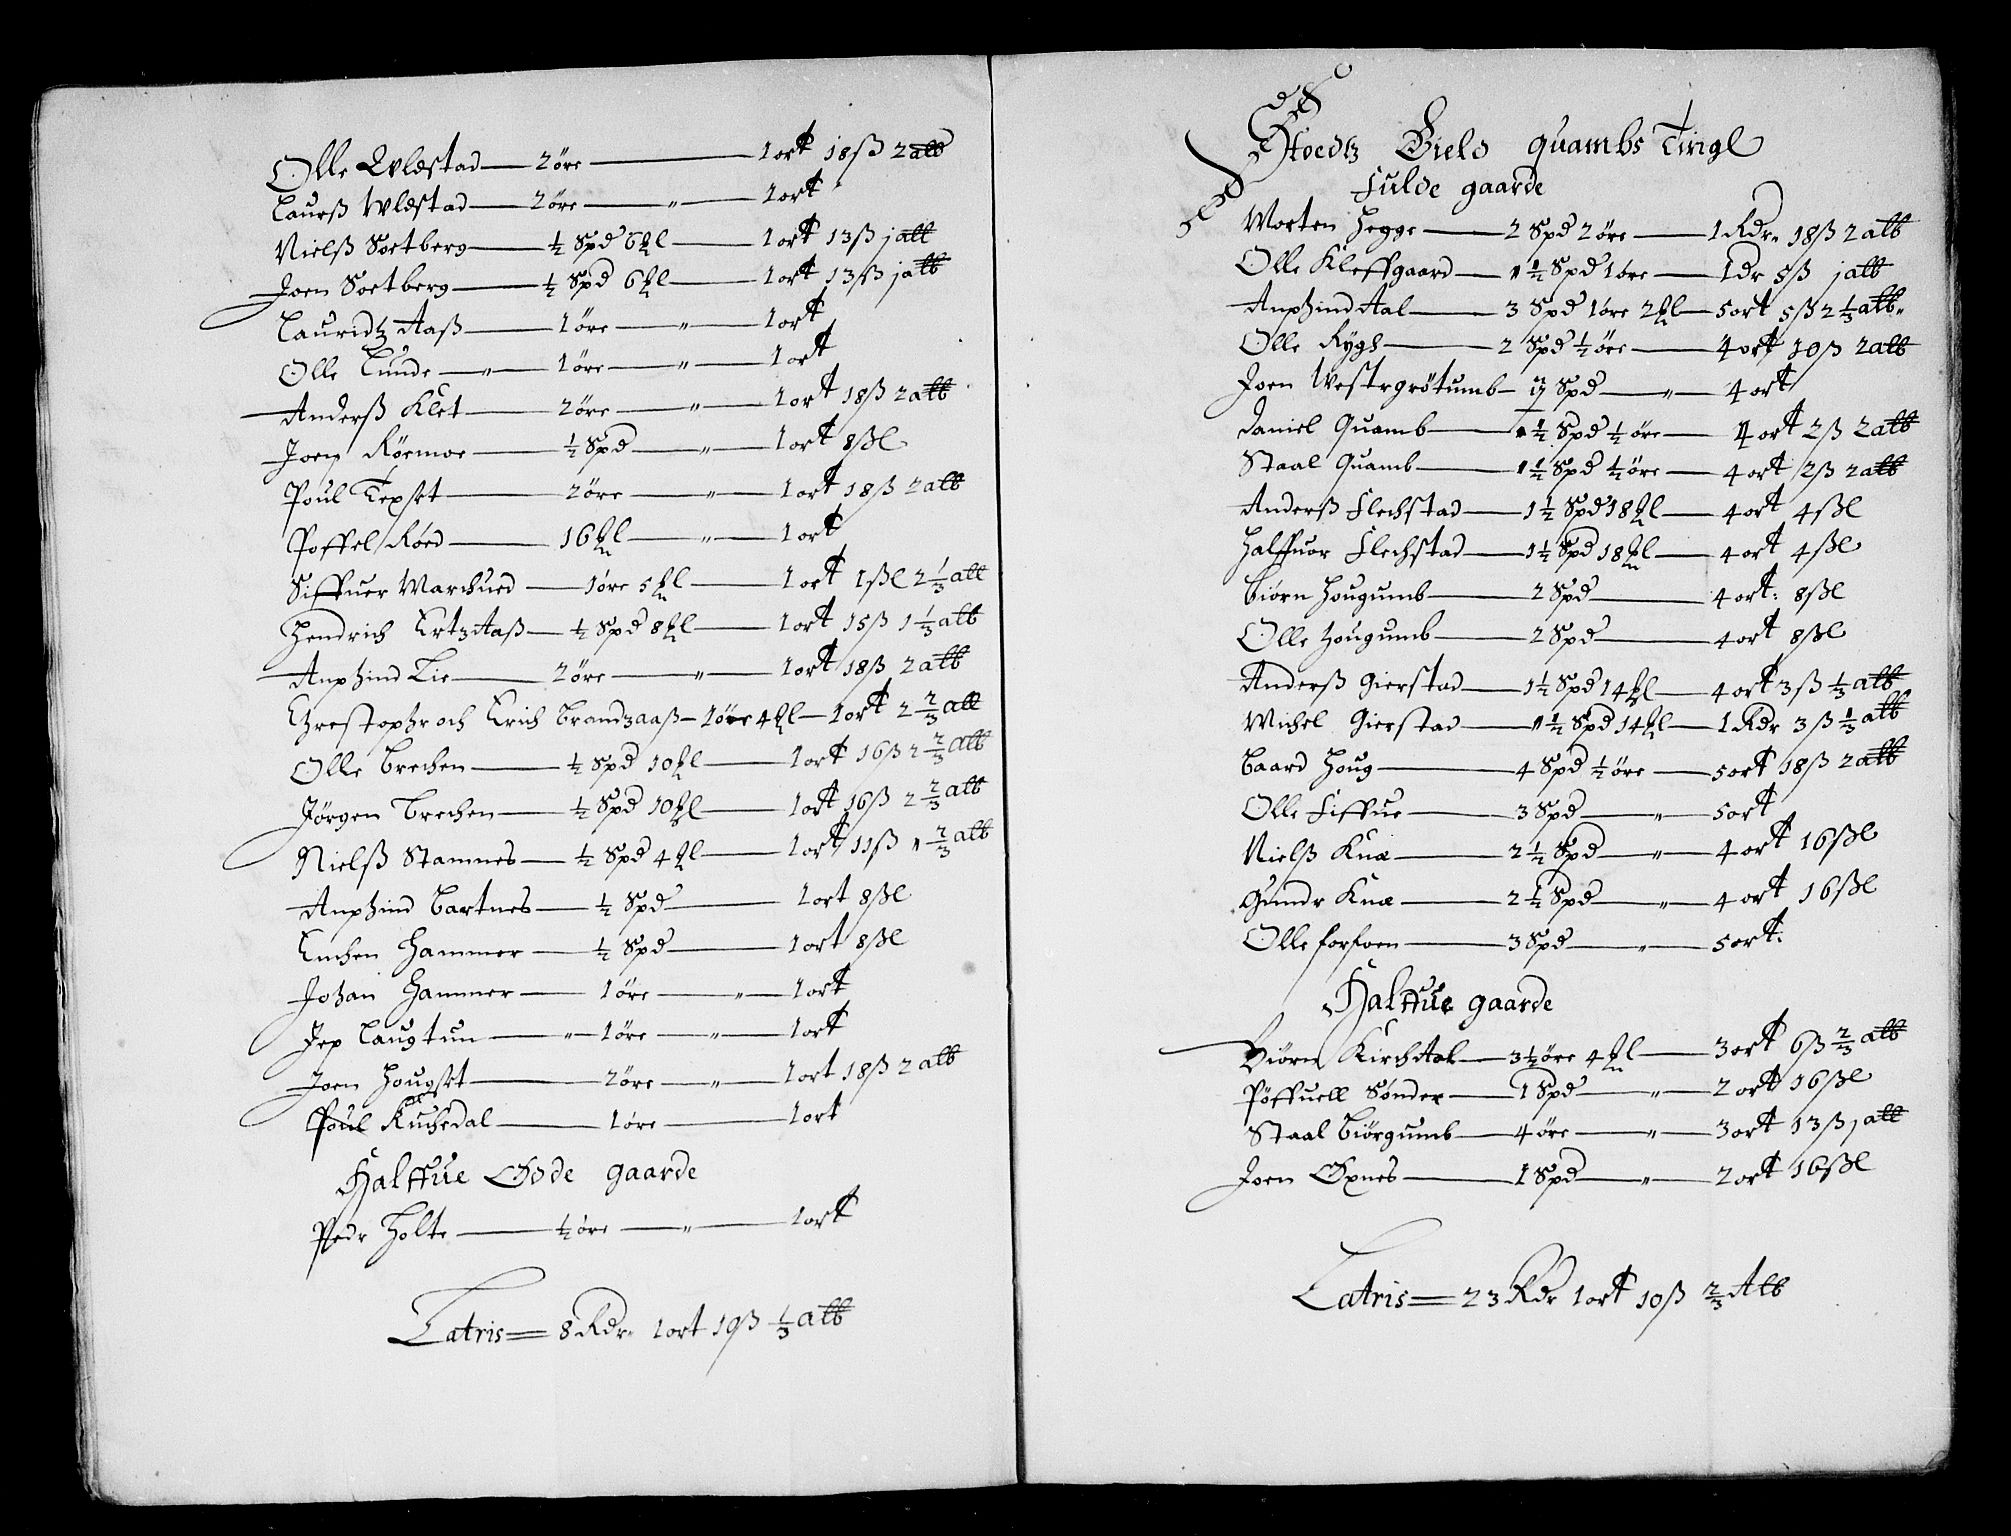 Olle Wlestad — 2 öre — 1 ort 18 ß 2 alb
Laurß Wlestad — 2 öre — " — 1 ort "
Nielß Soetberg — ½ Spd 6 ₰l — 1 ort 13 ß j alb
Joen Soetberg — ½ Spd 6 ₰l — 1 ort 13 ß j alb
Lauridtz Aaß — 1 öre — " — 1 ort
Olle Lunde — " — 1 öre — " — 1 ort
Anderß Klet — 2 öre — " — 1 ort 18 ß 2 alb
Joen Röemoe — ½ Spd — " — 1 ort 8 ßl
Poul — 2 öre — " — 1 ort 18 ß 2 alb
Poffel Röed — 16 ₰l — " — 1 ort
Siffuer Warchued — 1 öre 5 ₰l — 1 ort 1 ßl 2 ⅓ alb
Hendrich Ertzaaß — ½ Spd 8 ₰l — 1 ort 15 ß 1 ⅓ alb
Anphind Lie — 2 öre — " — 1 ort 18 ß 2 alb
Chrestophr och Erich Brandzaaß — 1 öre 4 ₰l — 1 ort 2 ⅔ alb
Olle Brechen — ½ Spd 10 ₰l — 1 ort 16 ß 2 ⅔ alb
Jörgen Brechen — ½ Spd 10 ₰l — 1 ort 16 ß 2 ⅔ alb
Nielß Stamnes — ½ Spd 4 ₰l — 1 ort 11 ß " ⅔ alb
Anphind Bartnes — ½ Spd — 1 ort 8 ßl
Enchen Hammer — ½ Spd — 1 ort 8 ßl
Johan Hammer — 1 öre — " — 1 ort
Jep Laugtun — " — 1 öre — " — 1 ort
Joen — 2 öre — " — 1 ort 18 ß 2 alb
Poul — 1 öre — 1 ort
Halffue Øde gaarde
Pedr Holte — ½ öre — " — 1 ort
Latris = 8 Rdr. 1 ort 19 ß ⅓ alb
Stoedtz Gield Quambs Tingl
Fulde gaarde
Morten Hegge — 2 Spd 2 öre — 1 Rdr. 18 ß 2 alb
Olle Kleffgaard — 1 ½ Spd 1 öre — 1 dr 5 ß j alb
Anphind Aal — 3 Spd 1 öre 2 ₰l — 5 ort 5 ß 2 ⅓ alb.
Olle Rygh — 2 Spd ½ öre — 4 ort 10 ß 2 alb
Joen Westrgrötumb — 2 Spd — " — 4 ort
Daniel Quamb — 1 ½ Spd ½ öre — 4 ort 2 ß 2 alb
Staal Quamb — 1 ½ Spd ½ öre — 4 ort 2 ß 2 alb
Anderß Flechstad — 1 ½ Spd 18 ₰l — 4 ort 4 ßl
Halffuor Flechstad — 1 ½ Spd 18 ₰l — 4 ort 4 ßl
Biörn Hougumb — 2 Spd — 4 ort: 8 ßl
Olle Hougumb — 2 Spd — 4 ort 8 ßl
Anderß Gierstad — 1 ½ Spd 14 ₰l — 4 ort 3 ß ⅓ alb
Michel Gierstad — 1 ½ Spd 14 ₰l — 1 Rdr 3 ß ⅓ alb
Baard Houg — 4 Spd ½ öre — 5 ort 18 ß 2 alb
Olle Fiffue — 3 Spd — " — 5 ort
Nielß Knæ — 2 ½ Spd — " — 4 ort 16 ßl
Gundr Knæ — 2 ½ Spd — " — 4 ort 16 ßl
Olle forfoen — 3 Spd — " — 5 ort.
Halffue gaarde
Biörn Kirchdal — 3 ½ öre 4 ₰l — 3 ort 6 ß ⅔ alb
Pöffuell Sönder — 1 Spd — " — 2 ort 16 ßl
Staal Biörgumb — 4 öre — " — 3 ort 13 ß j alb
Joen Øxnes — 1 Spd — " — 2 ort 16 ßl
Latris = 23 Rdr 1 ort 10 ß ⅔ Alb